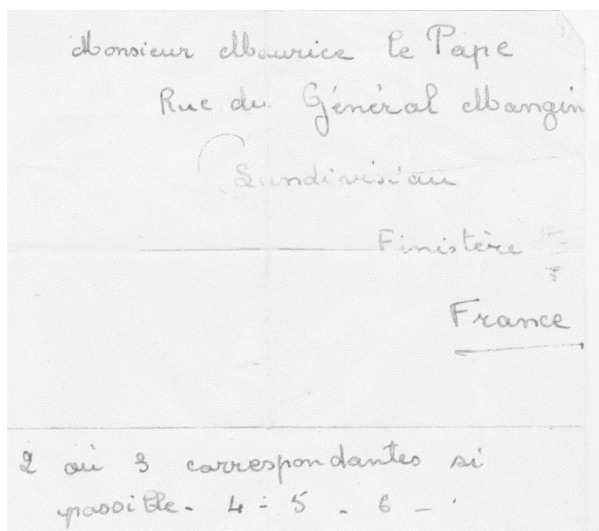 Monsieur Maurice le Pape
Rue du Général Mangin
Landivisiau
Finistère
France
2 où 3 correspondantes si
possible. 4 - 5 - 6 -